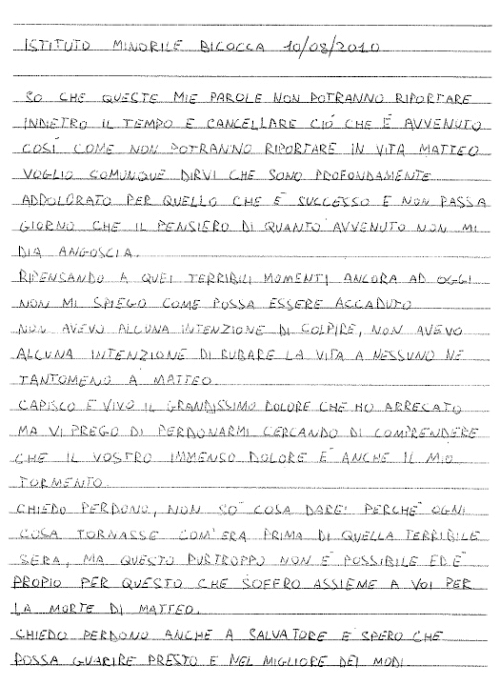 ISTITUTO MINORILE BICOCCA 10/08/2010
SO CHE QUESTE MIE PAROLE NON POTRANNO RIPORTARE
INDIETRO IL TEMPO E CANCELLARE CIÓ CHE É AVVENUTO
COSÌ COME NON POTRANNO RIPORTARE IN VITA MATTEO
VOGLIO COMUNQUE DIRVI CHE SONO PROFONDAMENTE
ADDOLORATO PER QUELLO CHE E' SUCCESSO E NON PASSA
GIORNO CHE IL PENSIERO DI QUANTO AVVENUTO NON MI
DIA ANGOSCIA.
RIPENSANDO A QUEI TERRIBILI MOMENTI ANCORA AD OGGI
NON MI SPIEGO COME POSSA ESSERE ACCADUTO
NON AVEVO ALCUNA INTENZIONE DI COLPIRE, NON AVEVO
ALCUNA INTENZIONE DI RUBARE LA VITA A NESSUNO NE
TANTOMENO A MATTEO.
CAPISCO E VIVO IL GRANDISSIMO DOLORE CHE HO ARRECATO
MA VI PREGO DI PERDONARMI CERCANDO DI COMPRENDERE
CHE IL VOSTRO IMMENSO DOLORE E' ANCHE IL MIO
TORMENTO.
CHIEDO PERDONO, NON SO' COSA DAREI PERCHE' OGNI
COSA TORNASSE COM'ERA PRIMA DI QUELLA TERRIBILE
SERA, MA QUESTO PURTROPPO NON E' POSSIBILE ED E'
PROPIO PER QUESTO CHE SOFFRO ASSIEME A VOI PER
LA MORTE DI MATTEO.
CHIEDO PERDONO ANCHE A SALVATORE E SPERO CHE
POSSA GUARIRE PRESTO E NEL MIGLIORE DEI MODI